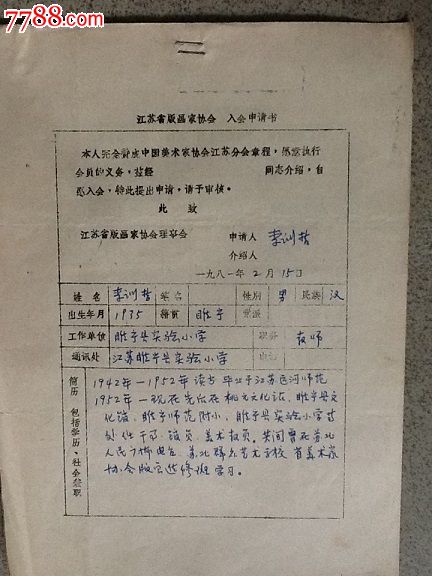 7788.com
中国收藏热线
江苏省版画家协会 入会申请书
本人完全赞成中国美术家协会江苏分会章程，愿意执行
会员的义务，兹经 同志介绍，自
愿入会，特此提出申请，请予审核。
此 致
江苏省版画家协会理事会 申请人 李训哲
介绍人
一九八一年 2 月 15 日
姓名 李训哲 笔名 性别 男 民族 汉
出生年月 1935 籍贯 睢宁 党派
工作单位 睢宁县实验小学 职务 教师
通讯处 江苏睢宁县实验小学 电话
简历 包括学历、社会兼职
1942年—1952年读书 毕业于江苏运河师范
1952年—现在先后在 文化站、睢宁县文
化馆、睢宁师范附小、睢宁县实验小学等
处任干部、馆员、美术教员。其间曾在苏北
人民 苏北 艺术学校 省美术家
协会版画进修班学习。